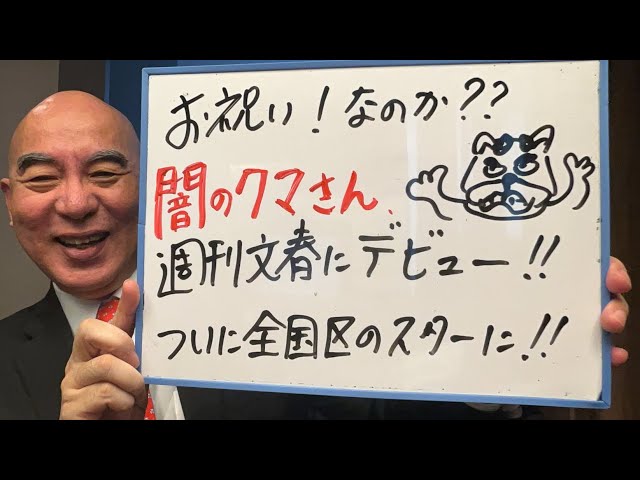 お祝い!なのか??
闇のクマさん、
週刊文春にデビュー!!
ついに全国区のスターに!!